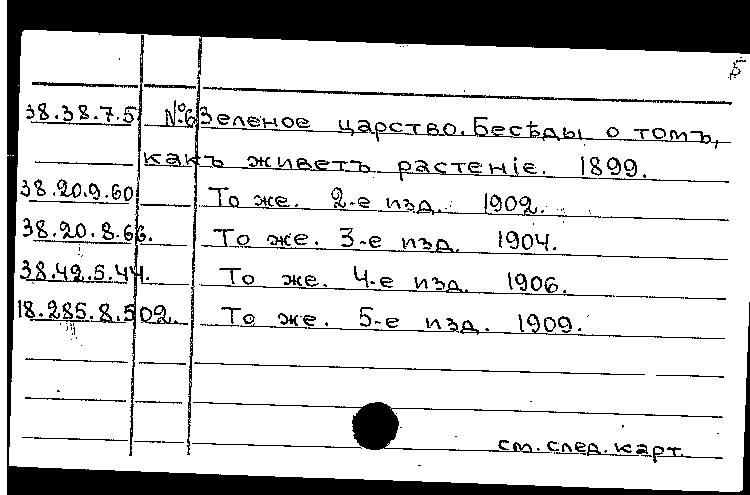 Б
38.38.7.5 №6 Зеленое царство. Бесѣды о томъ,
какъ живетъ растенiе. 1899.
38.20.9.60 То же. 2-е изд. 1902.
38.20.8.66. То же. 3-е изд. 1904.
38.42.5.44. То же. 4-е изд. 1906.
18.285.8.502. То же. 5-е изд. 1909.
см. след. карт.